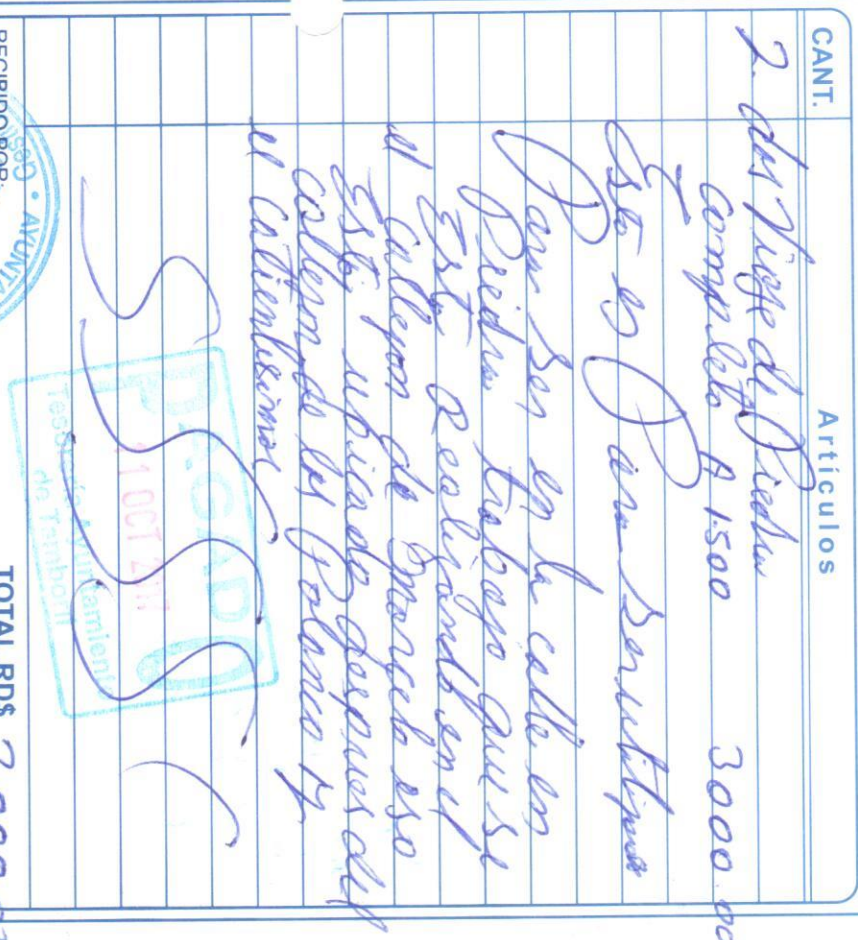 CANT.
Artículos
2. dos Viaje de Piedra
completo A 1500 3000.00
Esto es Para
Para ser en la calle en
Piedra trabajo que se
Esta Realizando en el
el Callejon de Marcelo eso
Esta ubicado despues del
callejon de los Polanco y
el
PAGADO
11 OCT 2017
Tesorería Ayuntamiento
de Tamboril
AYUNTA
RECIBIDO POR:
TOTAL RD$